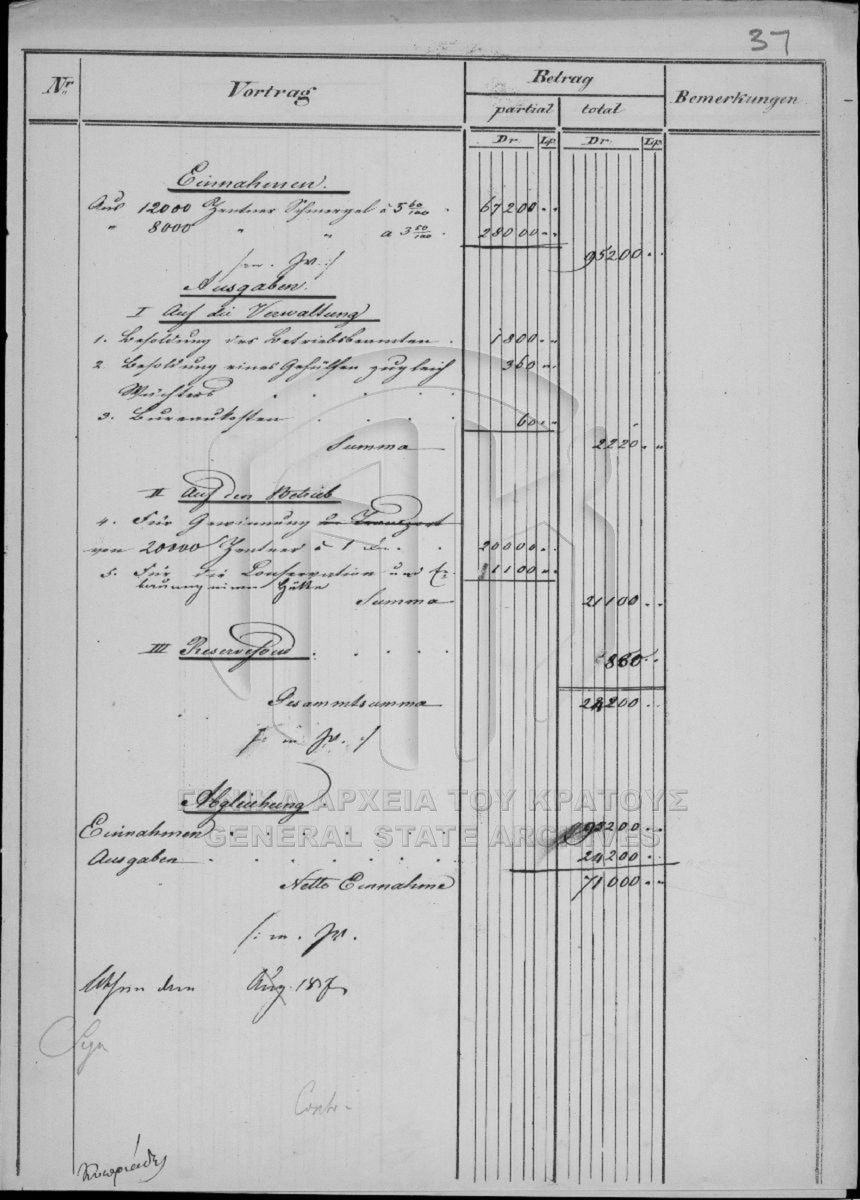 37
Nr. Vortrag Betrag Bemerkungen
partial total
Dr. Lp. Dr. Lp.
Einnahmen.
Aus 12000 Zentner Schmergel à 5 60/100 . 67200 „ „
„ 8000 „ „ a 3 50/100 . 28000 „ „
95200 „ „
Ausgaben.
I Auf die Verwaltung
1. Besoldung des Betriebsbeamten . 1800 „ „
2 Besoldung eines Gehülfen zugleich 360 „ „
Wächters . . . . .
3. Bureaukosten . . . . 60 „ „
Summa 2220 „ „
II Auf den Betrieb
4. Für Gewinnung u. Transport
von 20000 Zentner à 1 Dr. . . 20000 „ „
5. Für die Conservation und Er- 1100 „ „
bauung einer Hütte
Summa 21100 „ „
III Reservefond . . . . . 880 „ „
Gesammtsumma 24200 „ „
ΓΕΝΙΚΑ ΑΡΧΕΙΑ ΤΟΥ ΚΡΑΤΟΥΣ
GENERAL STATE ARCHIVES
Abgleichung
Einnahmen . . . . . 95200 „ „
Ausgaben . . . . . . . 24200 „ „
Netto Einnahme 71000 „ „
Athen den Aug. 187